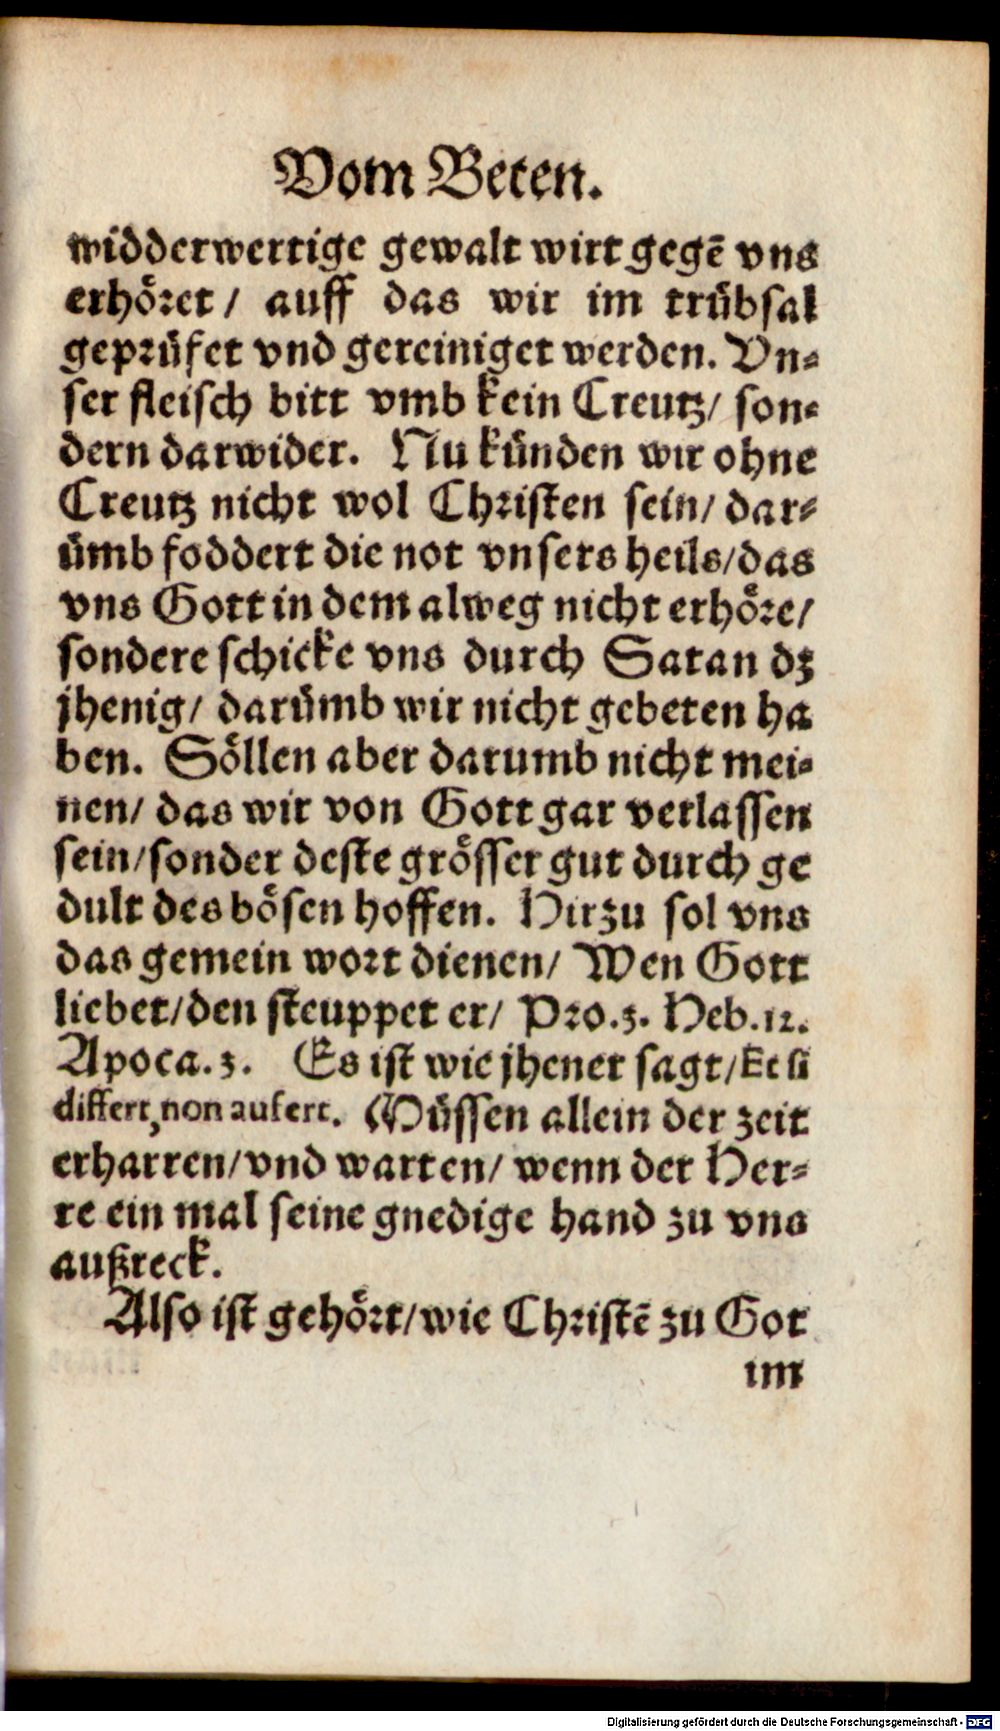 Vom Beten.
widderwertige gewalt wirt gegē vns
erhöret / auff das wir im trübsal
geprüfet vnd gereiniget werden. Vn⸗
ser fleisch bitt vmb kein Creutz / son⸗
dern darwider. Nu künden wir ohne
Creutz nicht wol Christen sein / dar⸗
ümb foddert die not vnsers heils / das
vns Gott in dem alweg nicht erhöre /
sondere schicke vns durch Satan dz
jhenig / darümb wir nicht gebeten ha
ben. Söllen aber darumb nicht mei⸗
nen / das wir von Gott gar verlassen
sein / sonder deste grösser gut durch ge
dult des bösen hoffen. Hirzu sol vns
das gemein wort dienen / Wen Gott
liebet / den steuppet er / Pro.3. Heb.12.
Apoca.3. Es ist wie jhener sagt / Et si
differt, non aufert. Müssen allein der zeit
erharren / vnd warten / wenn der Her⸗
re ein mal seine gnedige hand zu vns
außreck.
Also ist gehört / wie Christē zu Got
im
Digitalisierung gefördert durch die Deutsche Forschungsgemeinschaft - DFG